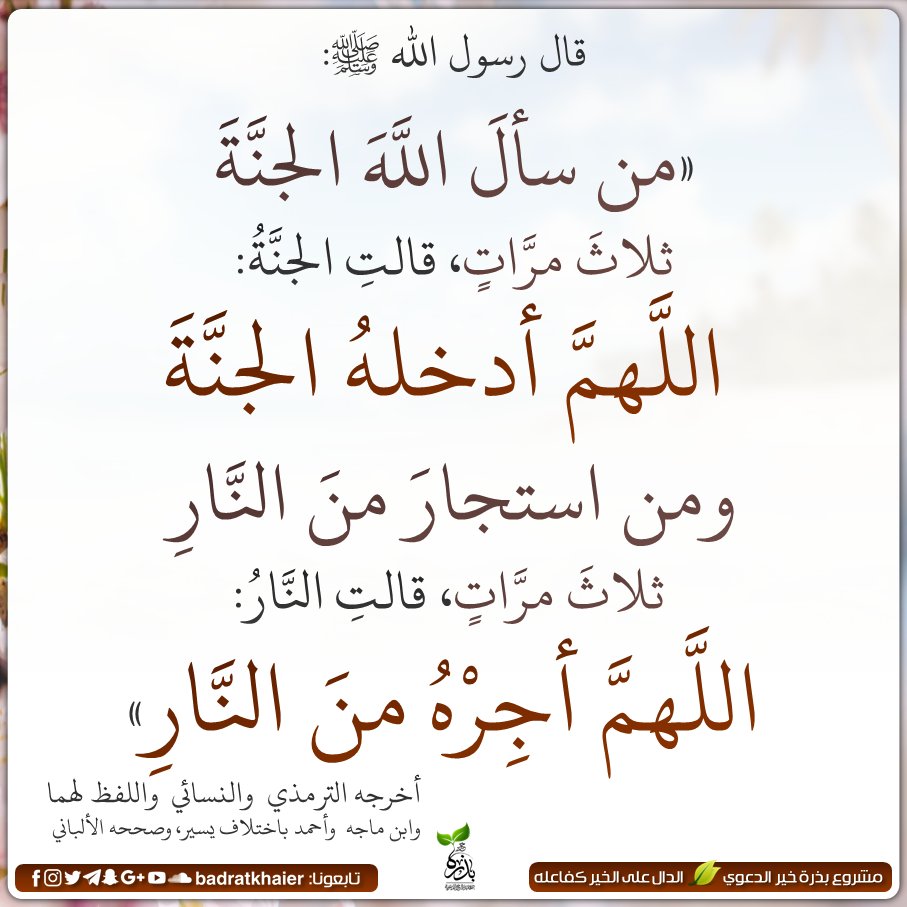 قال رسول الله ﷺ:
«من سألَ اللَّهَ الجنَّةَ
ثلاثَ مرَّاتٍ، قالتِ الجنَّةُ:
اللَّهمَّ أدخلهُ الجنَّةَ
ومن استجارَ منَ النَّارِ
ثلاثَ مرَّاتٍ، قالتِ النَّارُ:
اللَّهمَّ أجِرْهُ منَ النَّارِ»
أخرجه الترمذي والنسائي واللفظ لهما
وابن ماجه وأحمد باختلاف يسير، وصححه الألباني
مشروع بذرة خير الدعوي الدال على الخير كفاعله
تابعونا: badratkhaier